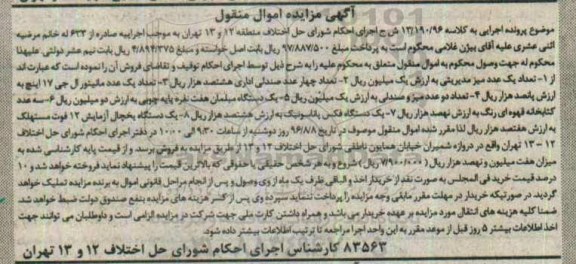 آگهی مزایده اموال منقول
موضوع پرونده اجرایی به کلاسه ۱۲/۱۹۰/۹۶ ش ح اجرای احکام شورای حل اختلاف منطقه ۱۲ و ۱۳ تهران به موجب اجراییه صادره از ۶۳۳ له خانم مرضیه
اثنی عشری علیه آقای بیژن غلامی محکوم است به پرداخت مبلغ ۹۷/۸۸۷/۵۰۰ ریال بابت اصل خواسته و مبلغ ۴/۸۹۴/۳۷۵ ریال بابت نیم عشر دولتی علیهذا
محکوم له جهت وصول محکوم به اموال منقول متعلق به محکوم علیه را به شرح ذیل توسط اجرای احکام توقیف و تقاضای فروش آن را نموده است که عبارت اند
از ۱- تعداد یک عدد میز مدیریتی به ارزش یک میلیون ریال ۲- تعداد چهار عدد صندلی اداری هشتصد هزار ریال ۳- تعداد یک عدد مانیتور ال جی ۱۷ اینچ به
ارزش پانصد هزار ریال ۴- تعداد دو عدد میز و صندلی به ارزش یک میلیون ریال ۵- یک دستگاه مبلمان هفت نفره پایه چوبی به ارزش دو میلیون ریال ۶- سه عدد
کتابخانه قهوه ای رنگ به ارزش نهصد هزار ریال ۷- یک دستگاه فکس پاناسونیک به ارزش هشتصد هزار ریال ۸- یک دستگاه یخچال آزمایش ۱۲ فوت مستهلک
به ارزش هفتصد هزار ریال لذا مقرر شده اموال منقول موصوف در تاریخ ۹۶/۸/۸ روز دوشنبه از ساعات ۹/۳۰ الی ۱۰/۰۰ در دفتر اجرای احکام شورای حل اختلاف
۱۲ - ۱۳ تهران واقع در دروازه شمیران خیابان همایون ناطقی شورای حل اختلاف ۱۲ و ۱۳ از طریق مزایده به فروش برسد و از قیمت پایه کارشناسی شده به
میزان هفت میلیون و نهصد هزار ریال (۷/۹۰۰/۰۰۰ ریال) شروع و به هر شخص حقیقی یا حقوقی که بالاترین قیمت را پیشنهاد نماید فروخته خواهد شد و ۱۰
درصد قیمت خرید فی المجلس به صورت نقد از خریدار اخذ و الباقی ظرف یک ماه از وی وصول و پس از انجام مراحل قانونی اموال به برنده مزایده تملیک خواهد
گردید در صورتیکه خریدار در مهلت مقرر مابقی وجه مزایده را پرداخت ننماید سپرده وی پس از کسر هزینه های مزایده بنفع صندوق دولت ضبط خواهد شد.
ضمنا کلیه هزینه های انتقال مورد مزایده بر عهده خریدار می باشد و همراه داشتن کارت ملی جهت شرکت در مزایده الزامی است و داوطلبان می توانند جهت
اخذ اطلاعات بیشتر ۵ روز قبل از موعد مقرر به این واحد اجرا مراجعه تا ترتیب اطلاعات بیشتر داده شود.
۸۳۵۶۳ کارشناس اجرای احکام شورای حل اختلاف ۱۲ و ۱۳ تهران